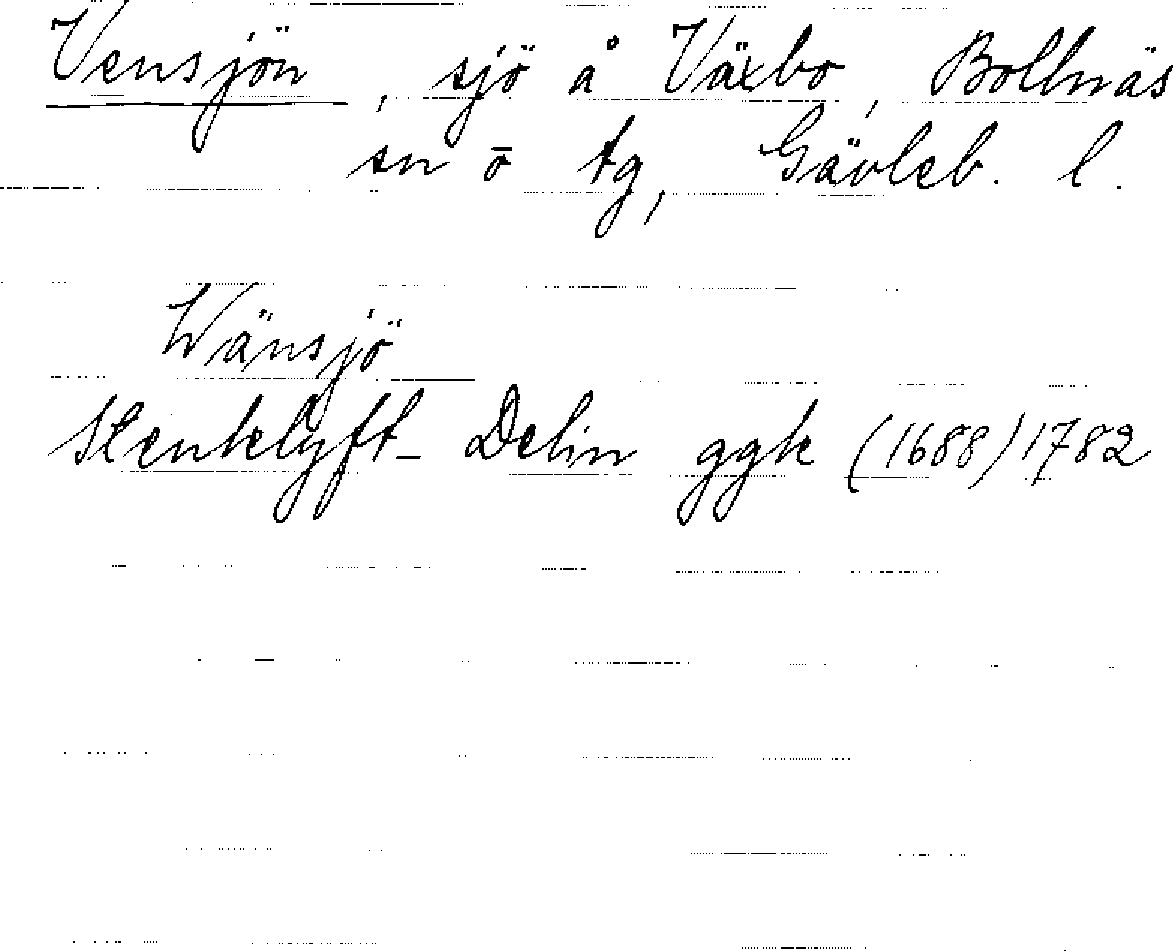 Vensjön, sjö å Växbo, Bollnäs
sn o tg, Gävleb. l.
Wänsjö
Stenklyft- Delin ggk (1688) 1782